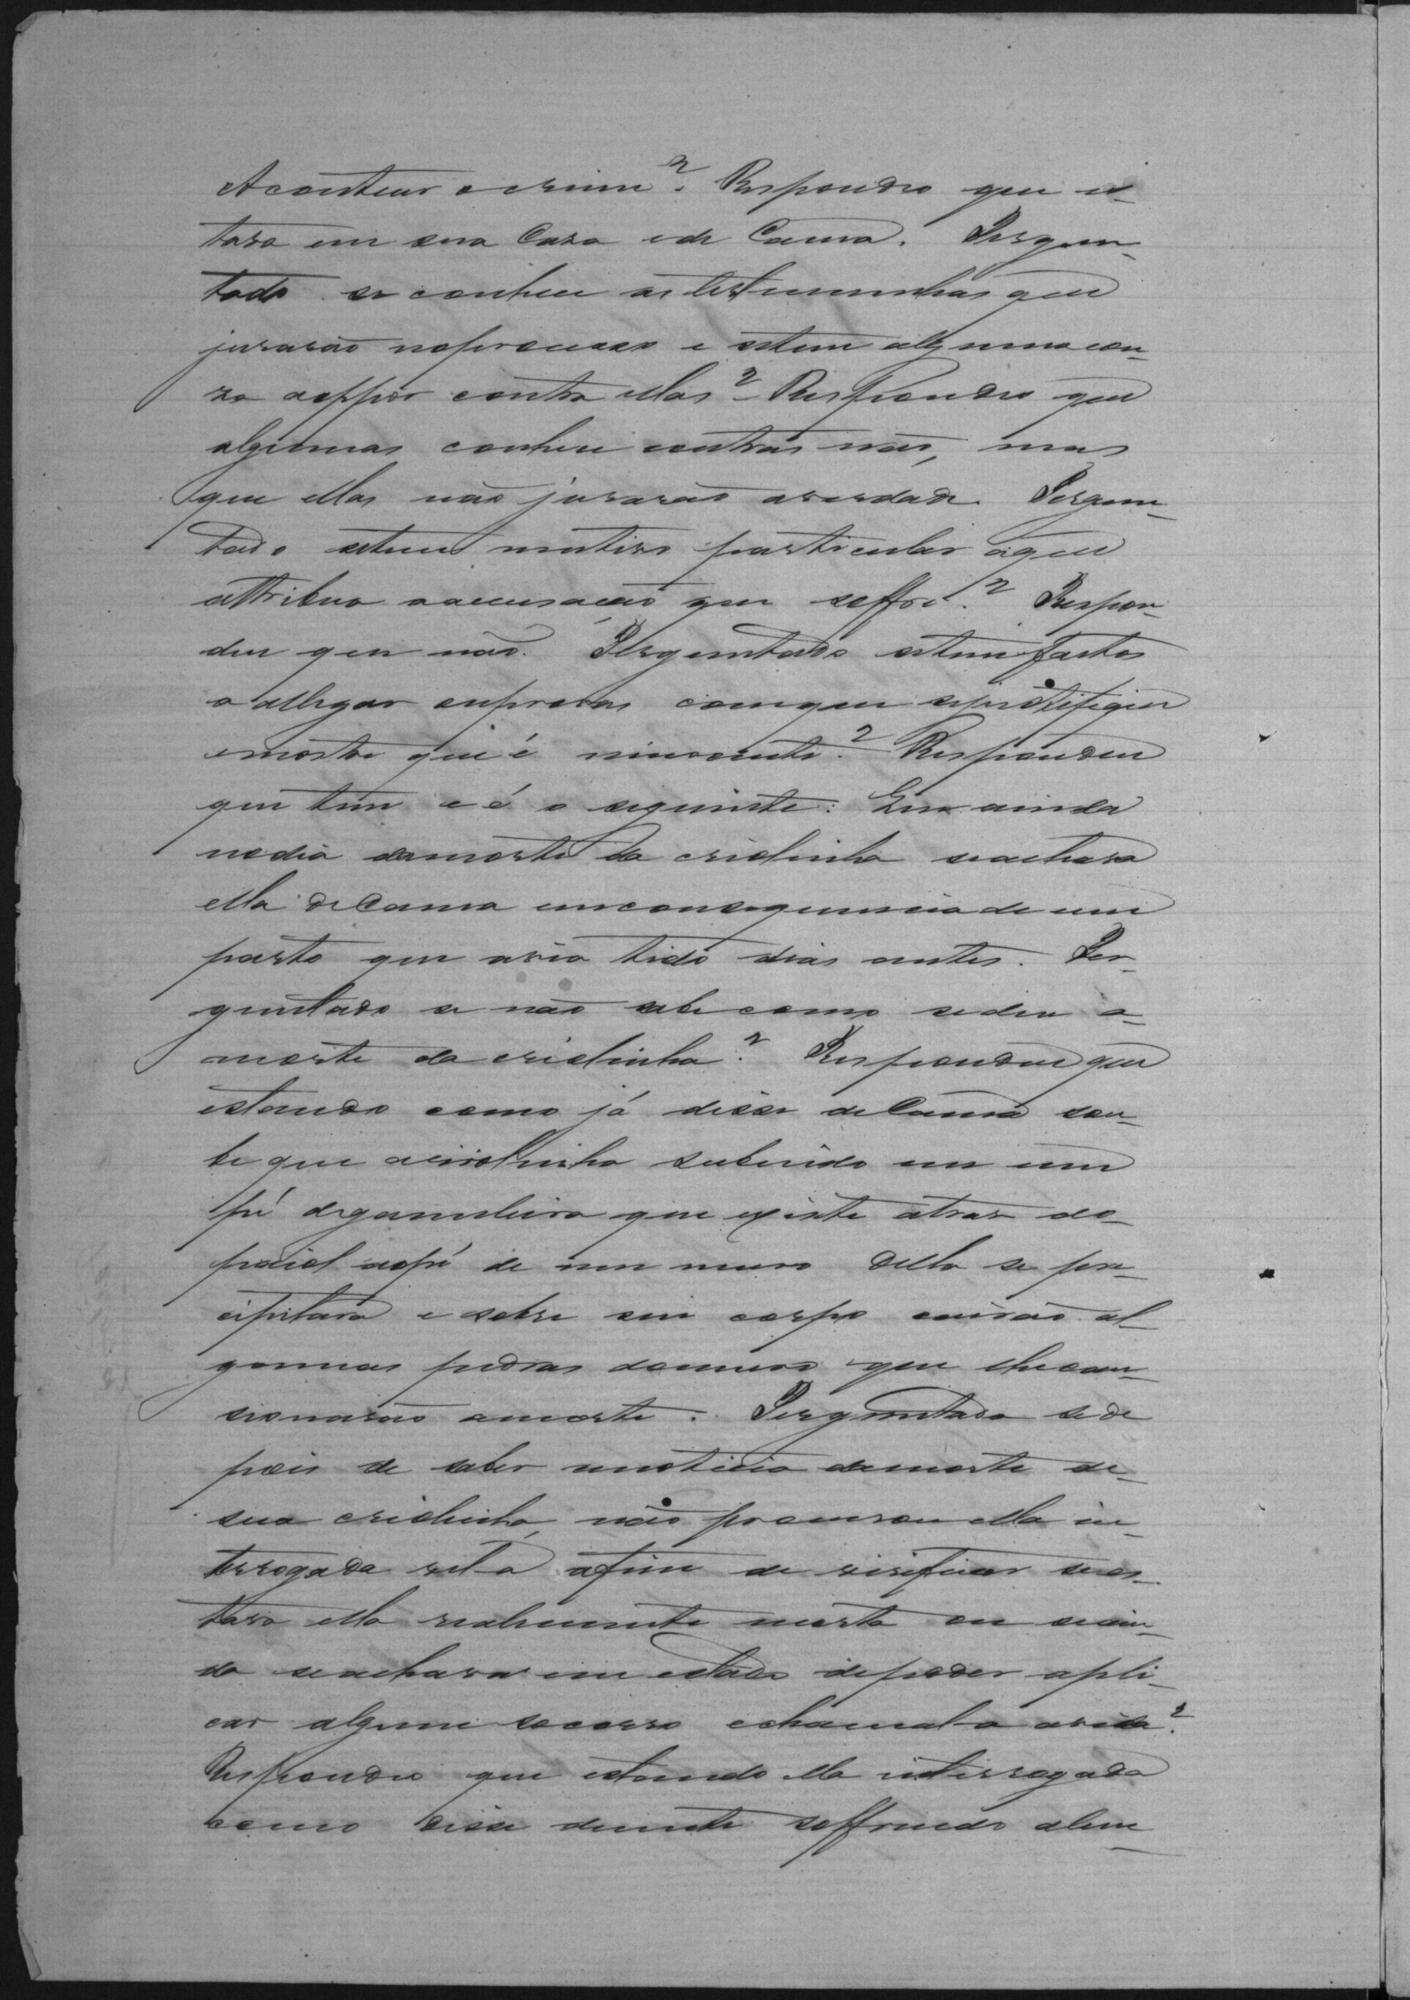 Aconteceu o crime? Respondeo que es-
tava em sua Casa e de Cama. Pergun-
tado se conhece as testemunhas que
jurarão no processo e se tem alguma cou-
za a oppor contra ellas? Respondeo que
algumas conhece e outras não, mas
que ellas não jurarão a verdade. Pergun-
tado se tem motivo particular a que
attribua a accusação que soffre? Respon-
deu que não. Perguntado se tem factos
a allegar ou provas com que se justifique
e mostre que é innocente? Respondeu
que tem e é o seguinte: Que ainda
no dia da morte da criolinha se achava
ella de Cama em consequencia de um
parto que avia tido dias antes. Per-
guntado se não sabe como se deu a
morte da criolinha? Respondeu que
estando como já disse de Cama sou-
be que a criolinha subindo em um
pé de gamelleira que existe atras do
paiol ao pé de um muro della se pre-
cipitara e sobre seu corpo cairão al-
gumas pedras do muro que lhe occa-
sionarão a morte. Perguntada se de
pois de saber a noticia da morte de
sua criolinha, não procurou ella in-
terrogada vel-a afim de virificar se es-
tava ella realmente morta ou se ain-
da se achava em estado de poder apli-
car algum socorro e chamal-a a vida?
Respondeo que estando ella interrogada
como disse doente soffrendo alem